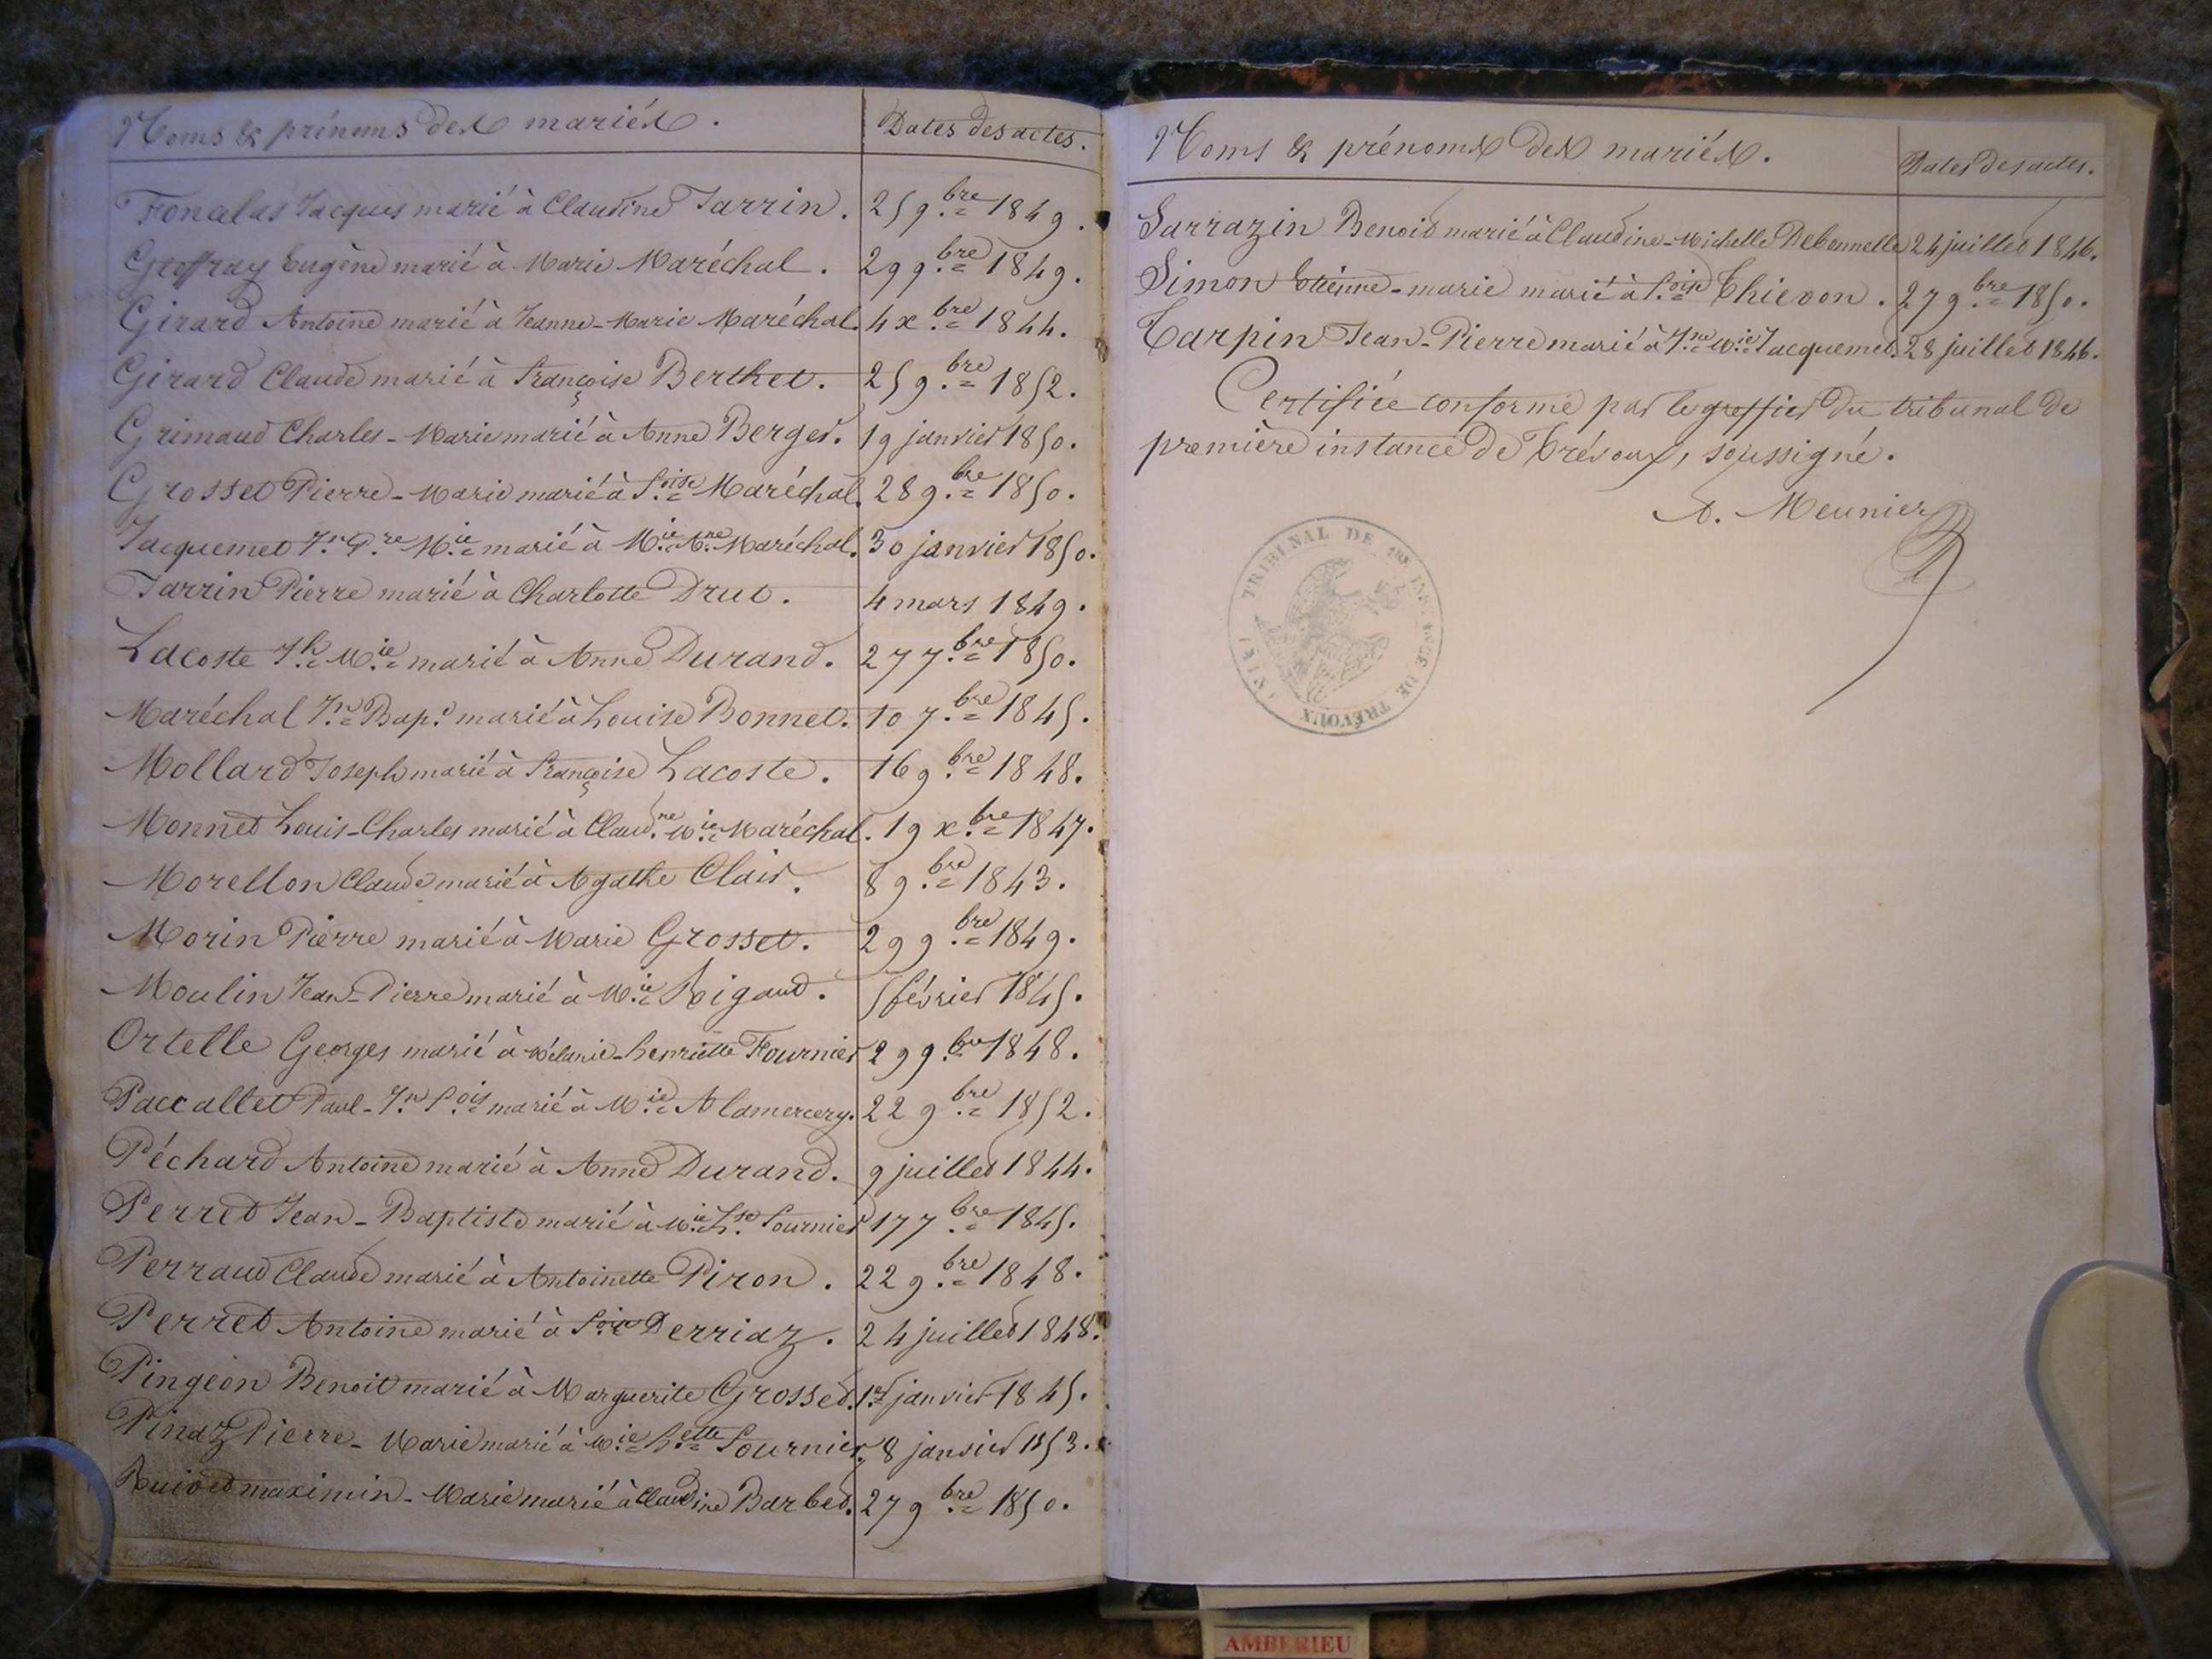 Noms & prénoms des mariés.
Dates des actes.
Fonclas Jacques marié à Claudine Jarrin. 25 9.bre 1849.
Geoffray Eugène marié à Marie Maréchal. 29 9.bre 1849.
Girard Antoine marié à Jeanne-Marie Maréchal. 4 x.bre 1844.
Girard Claude marié à françoise Berthet. 25 9.bre 1852.
Grimaud Charles-Marie marié à Anne Berger. 19 janvier 1850.
Grosset Pierre-Marie marié à f.oise Maréchal. 28 9.bre 1850.
Jacquemet J.n P.re M.ie marié à M.ie A.ne Maréchal. 30 janvier 1850.
Jarrin Pierre marié à Charlotte Drut. 4 mars 1849.
Lacoste J.h M.ie marié à Anne Durand. 27 7.bre 1850.
Maréchal J.n Bap.e marié à Louise Bonnet. 10 7.bre 1845.
Mollard Joseph marié à françoise Lacoste. 16 9.bre 1848.
Monnet Louis-Charles marié à Claud.ne M.ie Maréchal. 19 x.bre 1847.
Morellon Claude marié à Agathe Clair. 8 9.bre 1843.
Morin Pierre marié à Marie Grosset. 29 9.bre 1849.
Moulin Jean-Pierre marié à M.ie Rigaud. 5 février 1845.
Ortelle Georges marié à Mélanie-henriette Fournier 29 9.bre 1848.
Paccallet Paul-J.n f.ois marié à M.ie Alamercery. 22 9.bre 1852.
Péchard Antoine marié à Anne Durand. 9 juillet 1844.
Perret Jean-Baptiste marié à M.ie L.se fournier 17 7.bre 1845.
Perraud Claude marié à Antoinette Piron. 22 9.bre 1848.
Perret Antoine marié à f.oise Derriaz. 24 juillet 1848.
Pingeon Benoit marié à Marguerite Grosset. 1.er janvier 1845.
Pinaz Pierre-Marie marié à M.ie h.ette fournier. 8 janvier 1853.
Ruivet maximin-Marie marié à Claudine Barbet. 27 9.bre 1850.
Noms & prénoms des mariés.
Dates des actes.
Sarrazin Benoit marié à Claudine-Michelle Debonnelle 24 juillet 1846.
Simon Etienne-marie marié à f.oise Thievon. 27 9.bre 1850.
Tarpin Jean-Pierre marié à J.ne M.ie Jacquemet. 28 juillet 1846.
Certifiée conforme par le greffier du tribunal de
première instance de Trévoux, soussigné.
A. Meunier
TRIBUNAL DE 1RE INSTANCE DE TRÉVOUX (AIN)
AMBERIEU